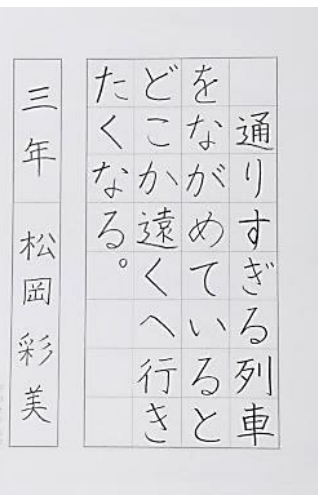 通りすぎる列車
をながめていると
どこか遠くへ行き
たくなる。
三年 松岡彩美